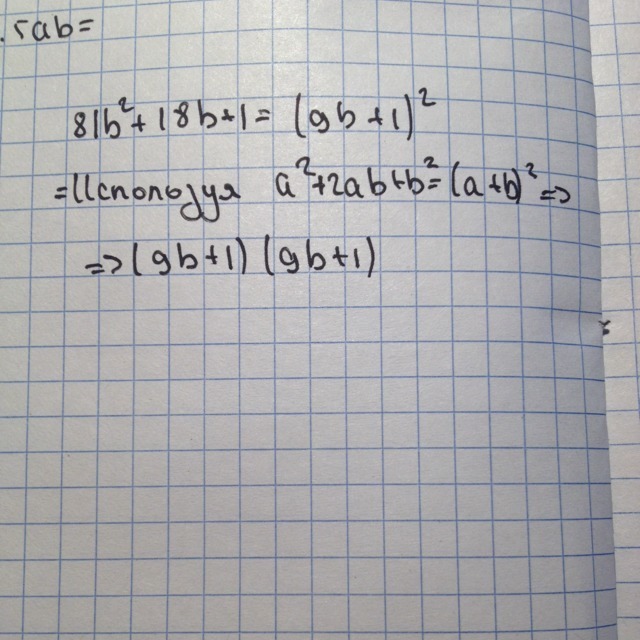 .5ab=
81b²+18b+1= (9b+1)²
=Используя a²+2ab+b²=(a+b)² =>
=>(9b+1)(9b+1)